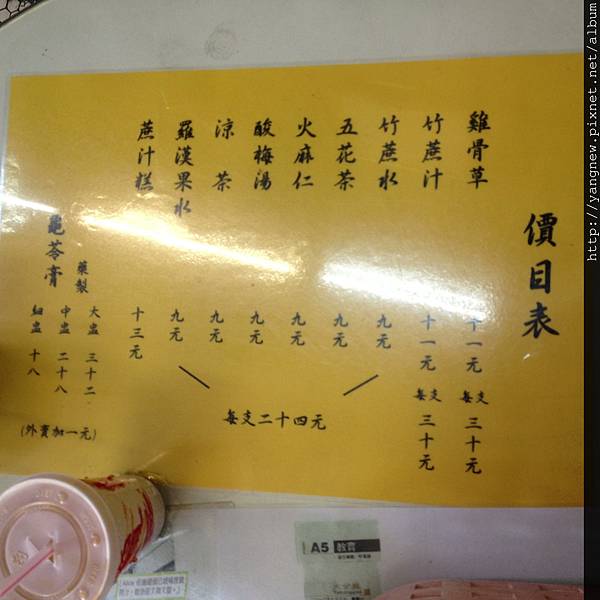 價目表
雞骨草 十一元 每支 三十元
竹蔗汁 十一元 每支 三十元
竹蔗水 九元
五花茶 九元
火麻仁 九元
酸梅湯 九元
涼茶 九元
羅漢果水 九元
每支二十四元
蔗汁糕 十三元
藥製
龜苓膏
大盅 三十二
中盅 二十八
細盅 十八
(外賣加一元)
A5 教育
http://yangnew.pixnet.net/album